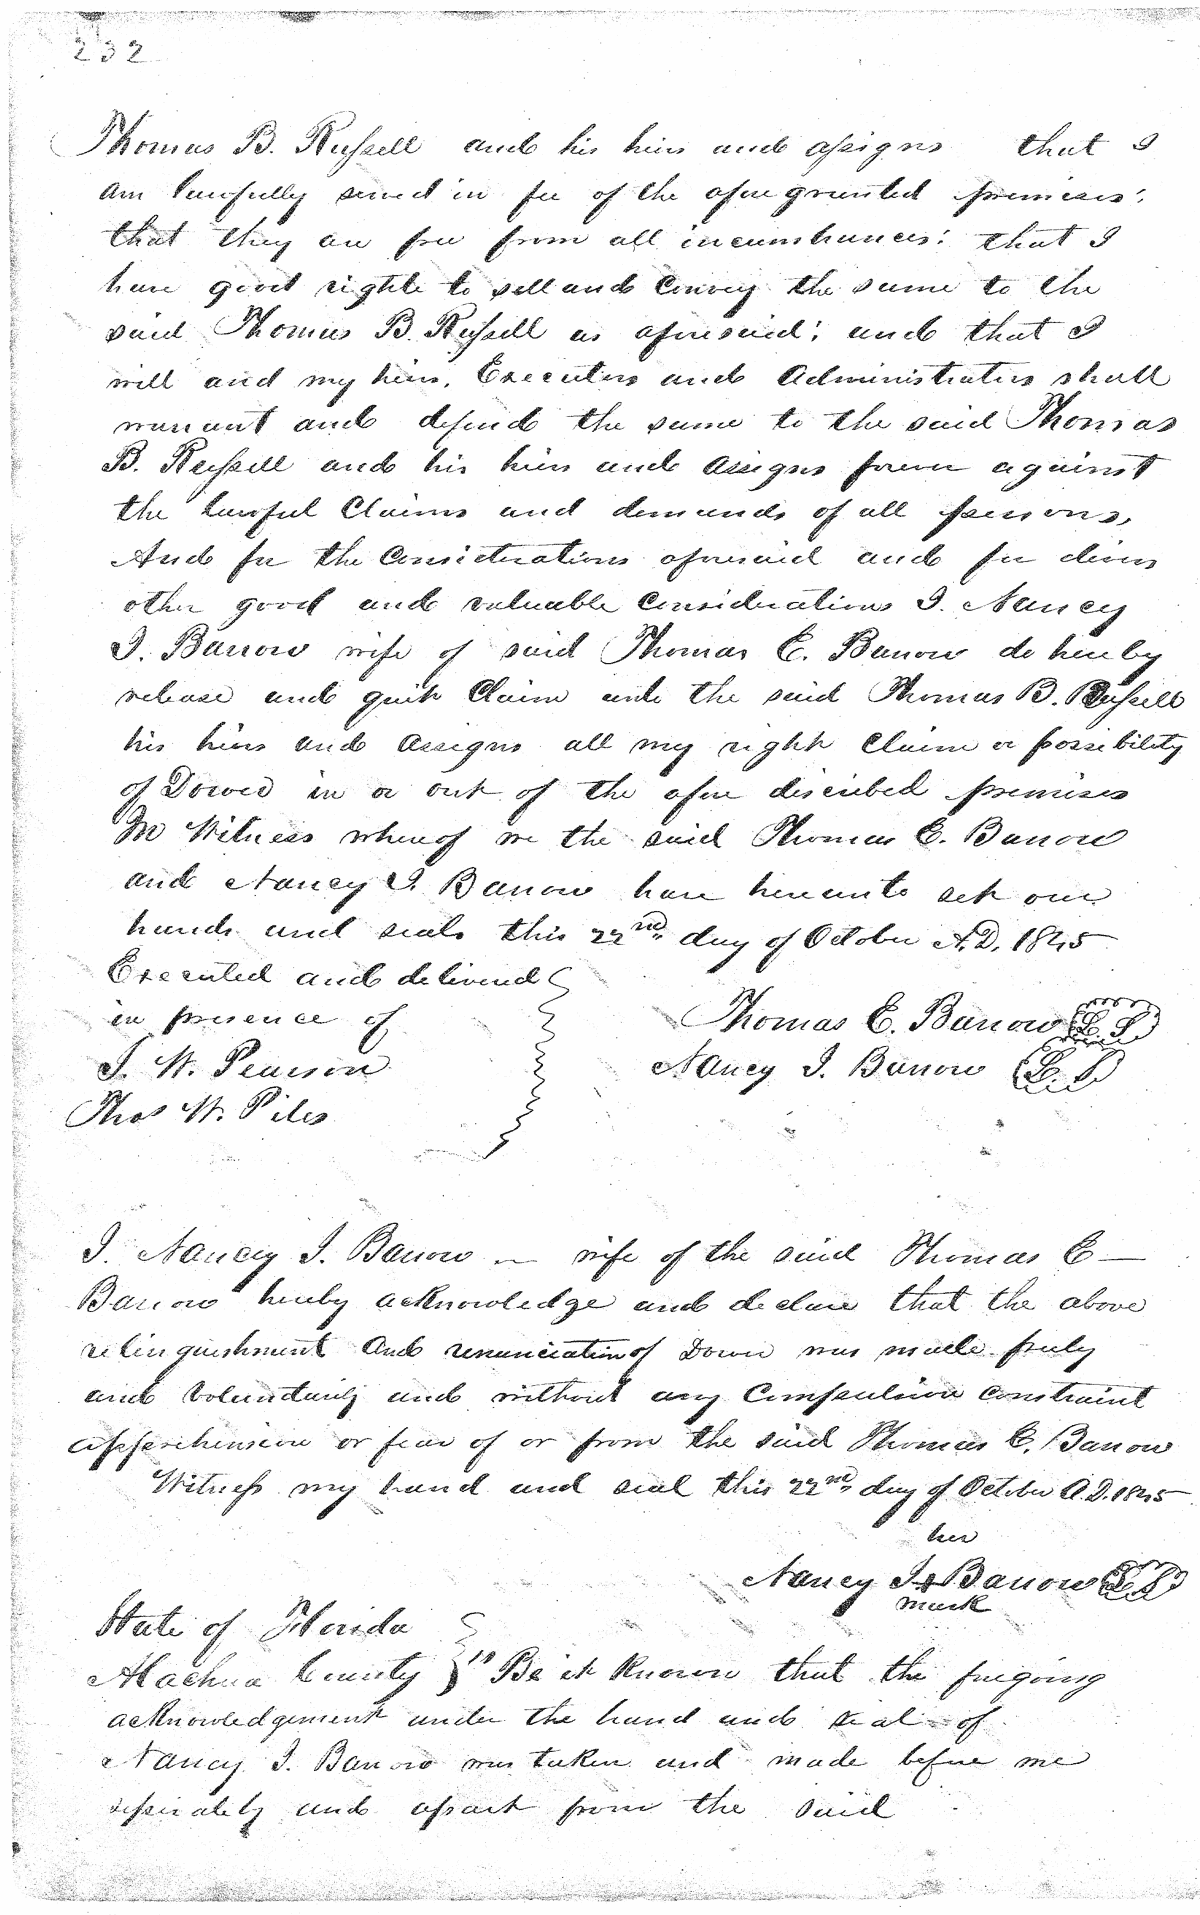 232
Thomas B. Russell and his heirs and assigns that I
am lawfully seized in fee of the afore granted premises;
that they are free from all incumbrances; that I
have good right to sell and Convey the same to the
said Thomas B. Russell as aforesaid; and that I
will and my heirs, Executors and Administrators shall
warrant and defend the same to the said Thomas
B. Russell and his heirs and assigns forever against
the lawful Claims and demands of all persons,
And for the Considerations aforesaid and for divers
other good and valuable Considerations I. Nancy
I. Barrow wife of said Thomas E. Barrow do hereby
release and quit Claim unto the said Thomas B. Russell
his heirs and assigns all my right Claim or possibility
of Dower in or out of the afore described premises
In Witness whereof we the said Thomas E. Barrow
and Nancy I. Barrow have hereunto set our
hands and seals this 22nd day of October A.D. 1845
Executed and delivered
in presence of
J. W. Pearson
Thos W. Piles
Thomas E. Barrow L. S.
Nancy I. Barrow L. S.
I. Nancy I. Barrow — wife of the said Thomas E —
Barrow hereby acknowledge and declare that the above
relinquishment and renunciation of Dower was made freely
and voluntarily and without any Compulsion constraint
apprehension or fear of or from the said Thomas E. Barrow
Witness my hand and seal this 22nd day of October A.D. 1845
her
Nancy I. + Barrow L. S.
mark
State of Florida
Alachua County } Be it known that the foregoing
acknowledgement under the hand and seal of
Nancy I. Barrow was taken and made before me
seperately and apart from the said